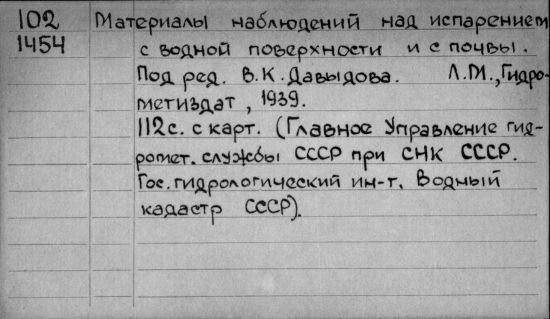 102 Материалы наблюдений над испарением
1454 с водной поверхности и с почвы.
Под ред. В.К. Давыдова. Л.М., Гидро-
метиздат, 1939.
112с. с карт. (Главное Управление гид-
ромет. службы СССР при СНК СССР.
Гос. гидрологический ин-т. Водный
кадастр СССР).